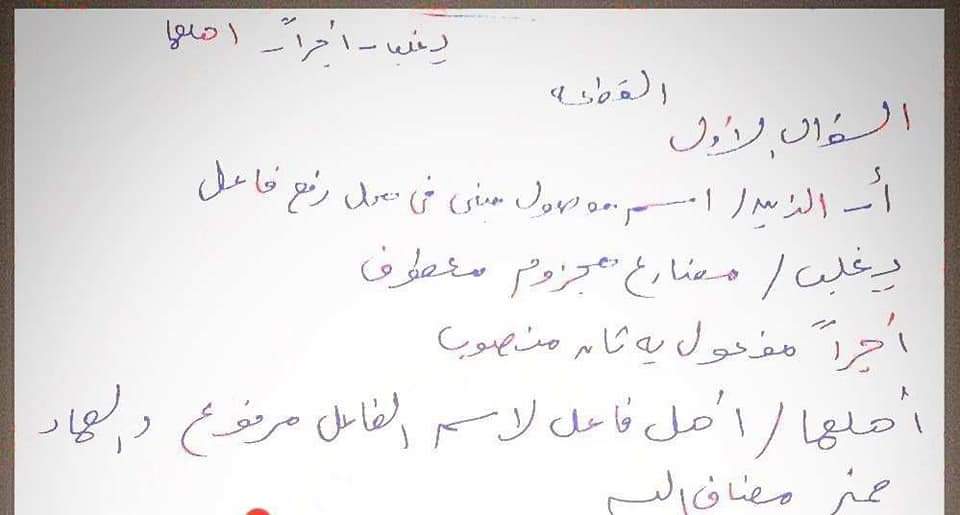 يغلب - أجراً - اهلها
القطعه
السؤال الأول
أ- الذين / اسم موصول مبنى فى محل رفع فاعل
يغلب / مضارع مجزوم معطوف
أجراً مفعول به ثان منصوب
أهلها / أهل فاعل لاسم الفاعل مرفوع والهاء
ضمير مضاف اليه